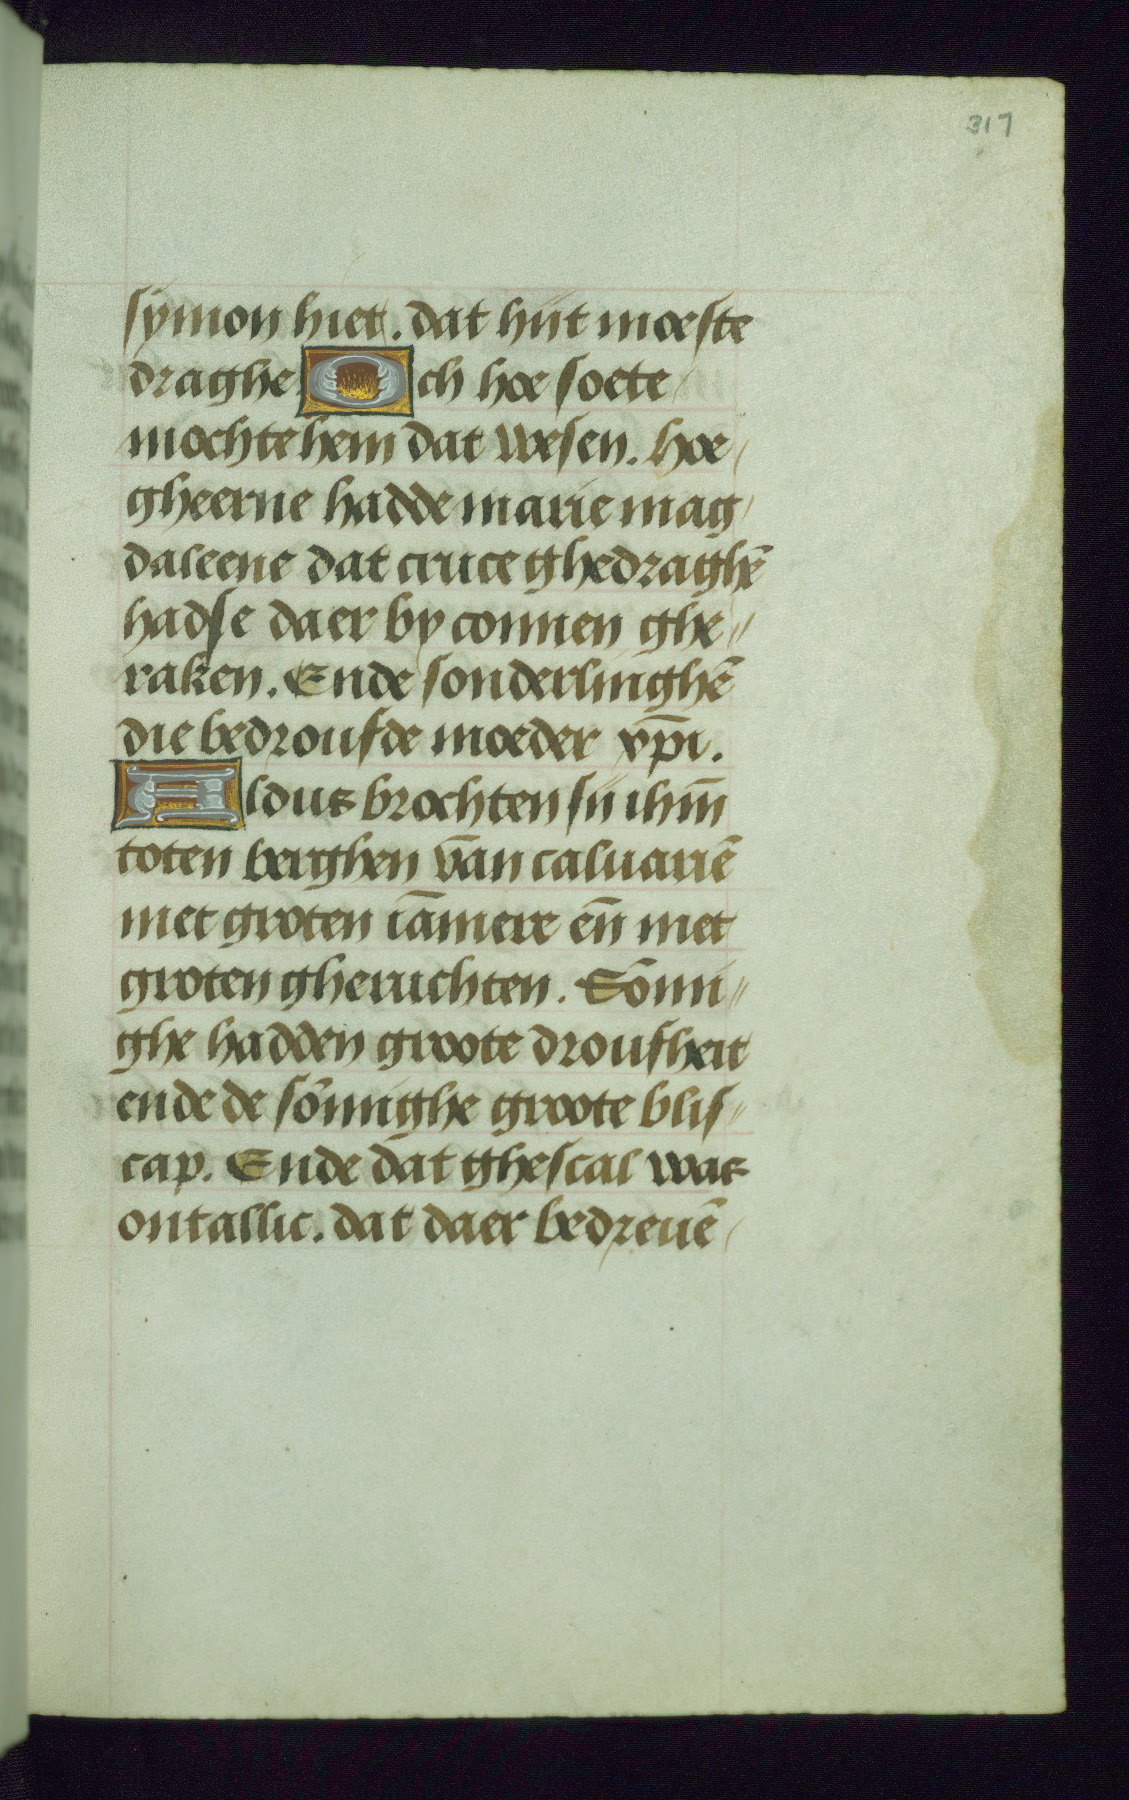 317
symon hiet. dat hijt moeste
draghe Och hoe soete
mochte hem dat wesen. hoe
gheerne hadde marie mag
daleene dat cruce ghedraghē
hadse daer by connen ghe//
raken. Ende sonderlinghē
die bedroufde moeder xp̄i.
Aldus brochten sij ihm̄
toten berghen van caluariē
met groten iāmere eñ met
groten gheruchten. Sōmi//
ghe hadden groote droufheit
ende de sōmighe groote blis//
cap. Ende dat ghescal was
ontallic. dat daer bedreuē